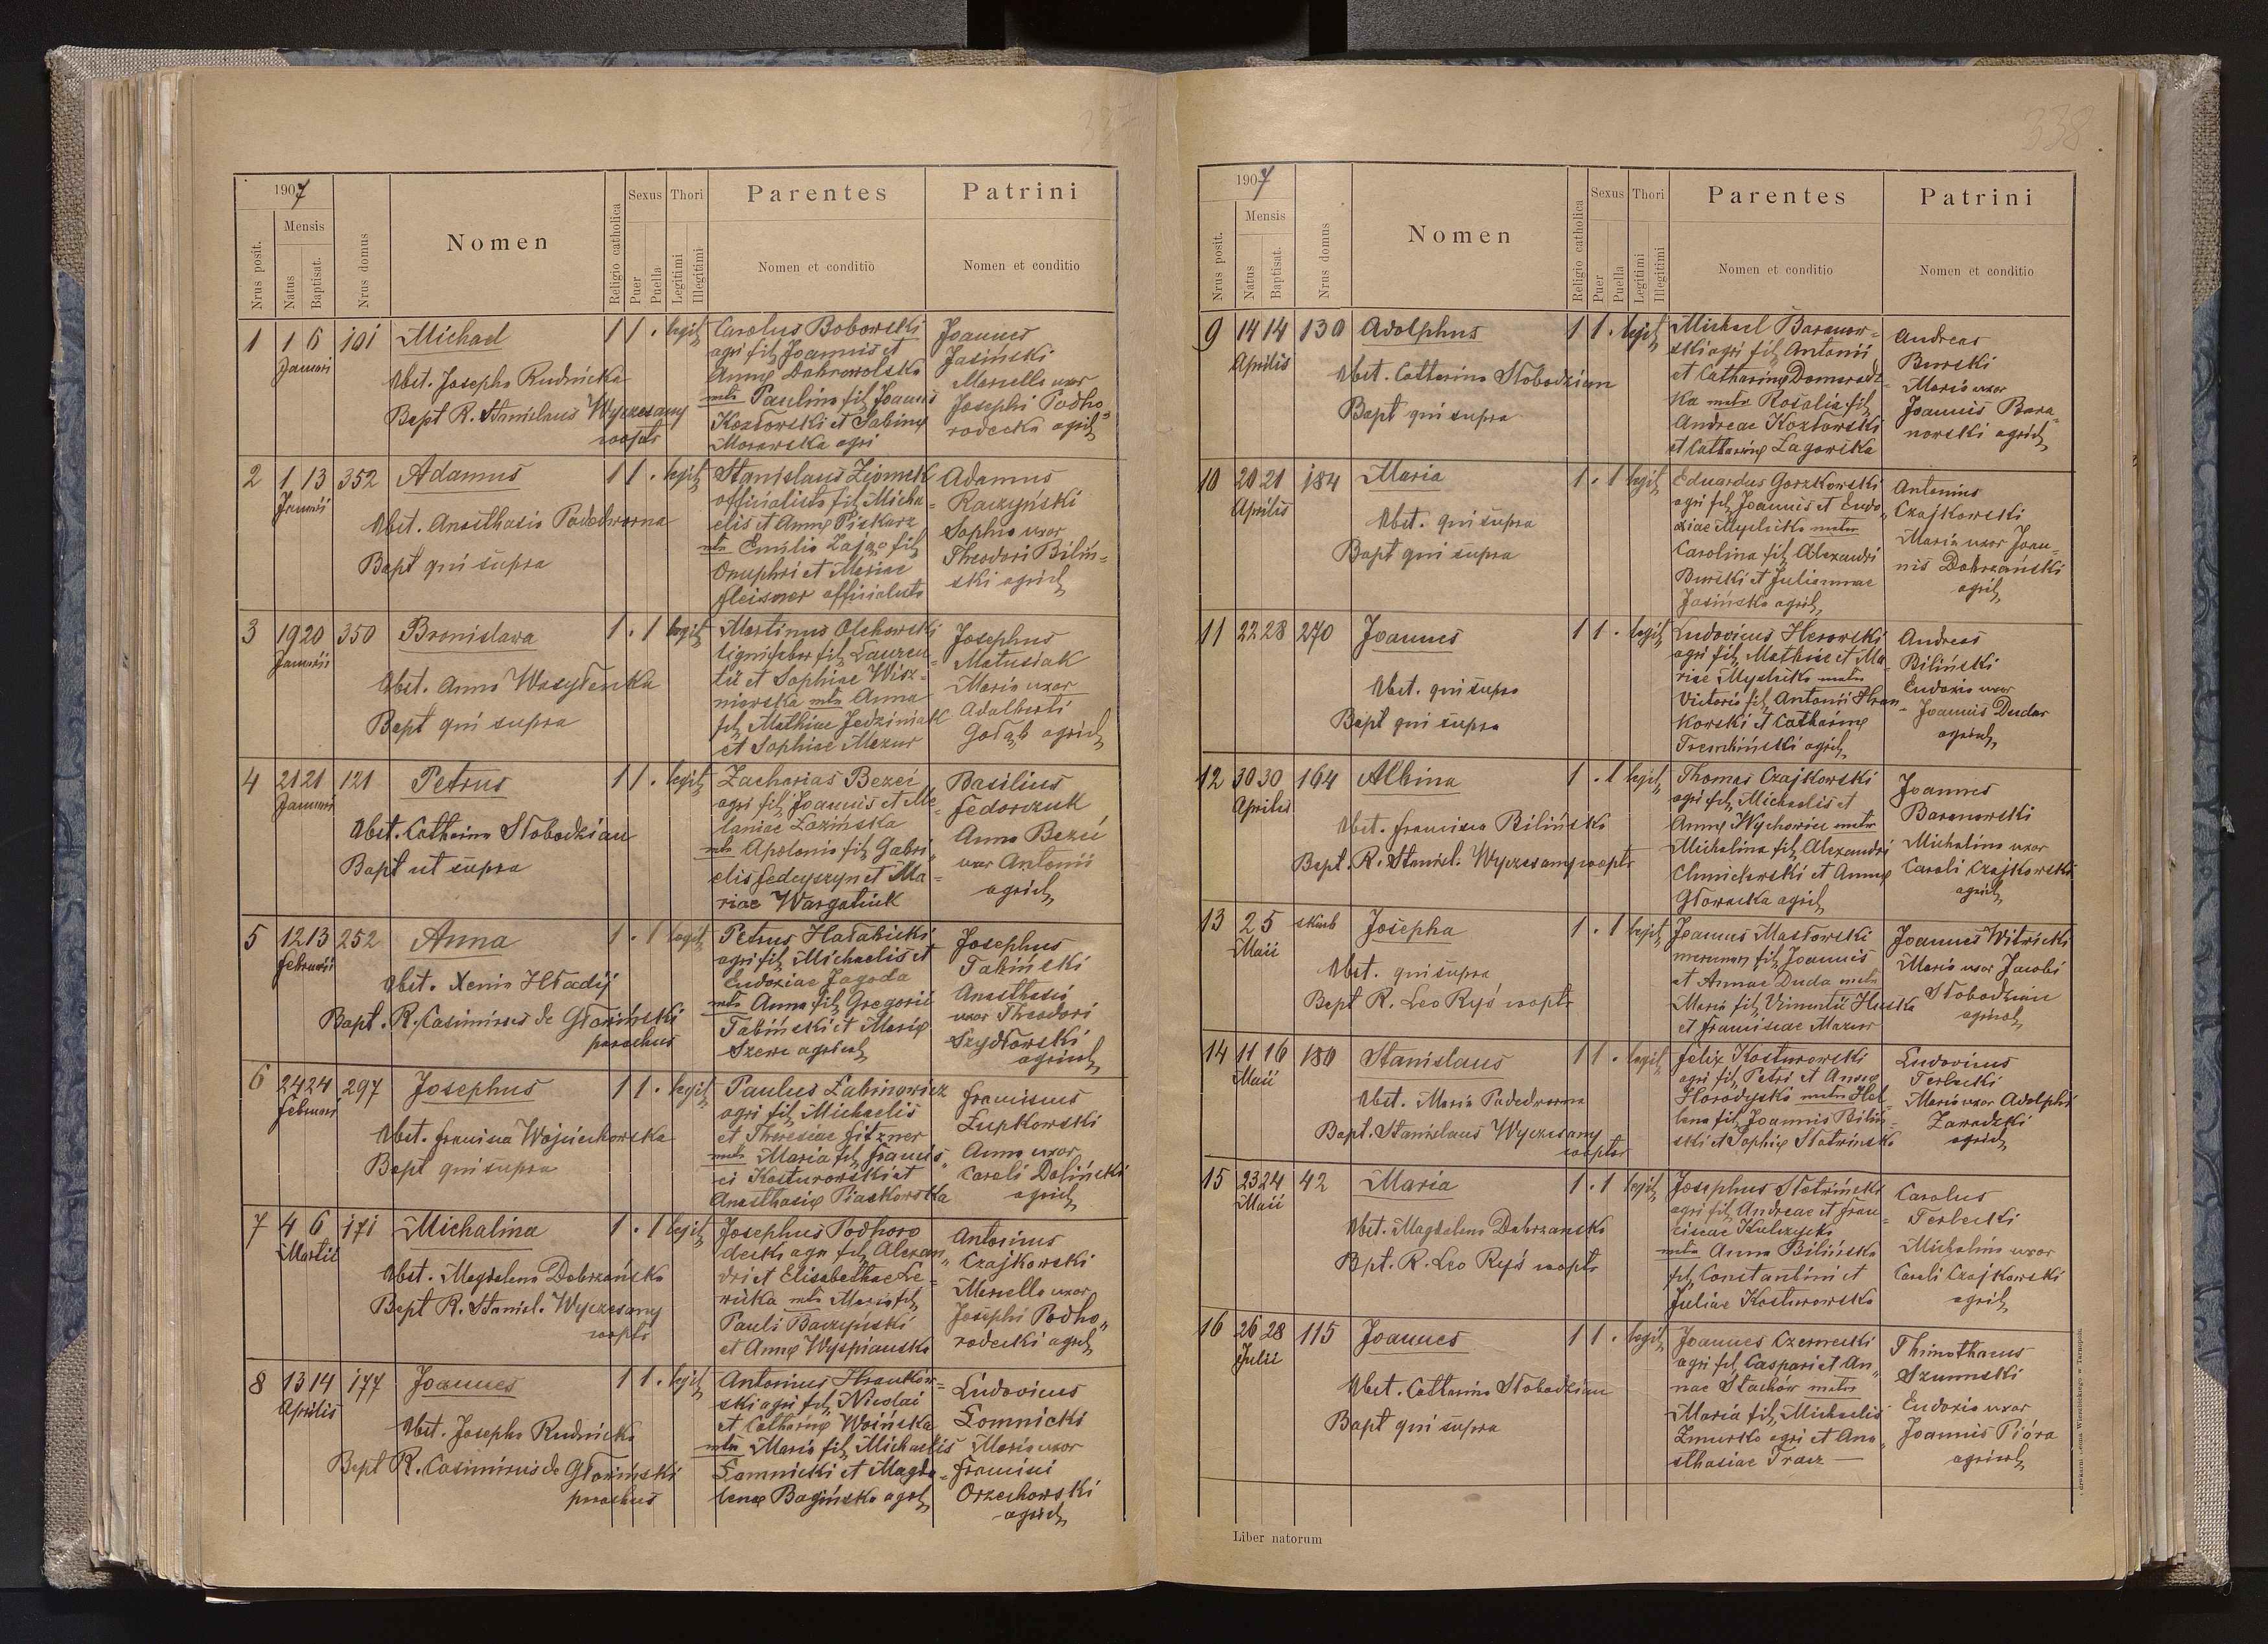 337
1907
Nrus posit.
Mensis
Natus
Baptisat.
Nrus domus
Nomen
Religio catholica
Sexus
Puer
Puella
Thori
Legitimi
Illegitimi
Parentes
Nomen et conditio
Patrini
Nomen et conditio
1 1 6 101 Michael 1 1 . legit
Januari
Obst. Josepha Rudnicka
Bapt R. Stanislaus Wyczesany
cooptr
Carolus Bobowski
agri fil, Joannis et
Annę Dobrowolska
mtr Paulina fil, Joannis
Kozłowski et Sabinę
Morawska agri
Joannes
Jasiński
Marcella uxor
Josephi Podho
rodecka agric
2 1 13 352 Adamus 1 1 . legit
Januarii
Obst. Anasthasia Padedworna
Bapt qui supra
Stanislaus Ziomek
officialista fil, Micha-
elis et Annę Piskorz
mtr Emilia Zając fil,
Onuphri et Mariae
Fleisner officialista
Adamus
Raczyński
Sophia uxor
Theodori Biliń-
ski agric
3 19 20 350 Bronislava 1 . 1 legit
Januarii
Obst. Anna Wasyłenka
Bapt qui supra
Martinus Olchowski
lignifaber fil, Lauren-
tii et Sophiae Wisz-
niowska mtr Anna
fil, Mathiae Jedziniak
et Sophiae Mazur
Josephus
Matusiak
Maria uxor
Adalberti
Gołąb agric
4 21 21 121 Petrus 1 1 . legit
Januari
Obst. Catharina Słobodzian
Bapt ut supra
Zacharias Bezei
agri fil, Joannis et Me-
laniae Łozińska
mtr Apolonia fil, Gabri-
elis Fedeyszyn et Ma-
riae Wargatiuk
Basilius
Fedorczuk
Anna Bezei
uxor Antonii
agric
5 12 13 252 Anna 1 . 1 legit
Februarii
Obst. Xenia Hładij
Bapt. R. Casimirus de Głoziński
parochus
Petrus Hałabicki
agri fil, Michaelis et
Eudoxiae Jagoda
mtr Anna fil, Gregorii
Tabiński et Marię
Szewc agricol
Josephus
Tabiński
Anasthasia
uxor Theodori
Szydłowski
agricol
6 24 24 297 Josephus 1 1 . legit
Februari
Obst. Francisca Wojciechowska
Bapt qui supra
Paulus Łabinowicz
agri fil, Michaelis
et Theresiae Fitzner
mtr Maria fil, Francis-
ci Kosturowski et
Anasthasię Piaskowska
Franciscus
Łupkowski
Anna uxor
Caroli Doliński
agric
7 4 6 171 Michalina 1 . 1 legit
Martii
Obst. Magdalena Dobrzańska
Bapt R. Stanisl. Wyczesany
cooptr
Josephus Podhoro
decki agri fil, Alexan-
dri et Elisabethae Le-
wicka mtr Maria fil,
Pauli Baczyński
et Annę Wyspiańska
Antonius
Czajkowski
Marcella uxor
Josephi Podho-
rodecki agric
8 13 14 177 Joannes 1 1 . legit
Aprilis
Obst. Josepha Rudnicka
Bapt R. Casimirus de Głoziński
parochus
Antonius Hrankow-
ski agri fil, Nicolai
et Catharinę Woińska
mtr Maria fil, Michaelis
Łomnicki et Magda-
lenę Bagińska agric
Ludovicus
Łomnicki
Maria uxor
Francisci
Orzechowski
agric
338
1907
Nrus posit.
Mensis
Natus
Baptisat.
Nrus domus
Nomen
Religio catholica
Sexus
Puer
Puella
Thori
Legitimi
Illegitimi
Parentes
Nomen et conditio
Patrini
Nomen et conditio
9 14 14 130 Adolphus 1 1 . legit
Aprilis
Obst. Catharina Słobodzian
Bapt qui supra
Michael Baranow-
ski agri fil, Antonii
et Catharinę Domaradz-
ka mater Rosalia fil,
Andreae Kozłowski
et Catharinę Zagorska
Andreas
Burski
Maria uxor
Joannis Bara-
nowski agric
10 20 21 184 Maria 1 . 1 legit
Aprilis
Obst. qui supra
Bapt qui supra
Eduardus Gorzkowski
agri fil, Joannis et Eudo-
xiae Myslicka mater
Carolina fil, Alexandri
Burski et Juliannae
Jasińska agric
Antonius
Czajkowski
Maria uxor Joan-
nis Dobrzański
agric
11 22 28 270 Joannes 1 1 . legit
Obst. qui supra
Bapt qui supra
Ludovicus Herowski
agri fil, Mathiae et Ma-
riae Myslicka mater
Victoria fil, Antonii Hran-
kowski et Catharinę
Trembiński agric
Andreas
Biliński
Eudoxia uxor
Joannis Dudar
agricol
12 30 30 164 Albina 1 . 1 legit
Aprilis
Obst. Francisca Bilińska
Bapt. R. Stanisl. Wyczesany cooptr
Thomas Czajkowski
agri fil, Michaelis et
Annę Wychowicz mater
Michalina fil, Alexandri
Chmielowski et Annę
Głowacka agric
Joannes
Baranowski
Michalina uxor
Caroli Czajkowski
agric
13 2 5 skarb Josepha 1 . 1 legit
Maii
Obst. qui supra
Bapt R. Leo Ryś cooptr
Joannes Masłowski
fil, Joannis
et Annae Duda mater
Maria fil, Vincentii Huska
et Franciscae Mazur
Joannes Witwicki
Maria uxor Jacobi
Słobodzian
agricol
14 11 16 180 Stanislaus 1 1 . legit
Maii
Obst. Maria Padedworna
Bapt. Stanislaus Wyczesany
cooptr
Felix Kosturowski
agri fil, Petri et Annę
Horodyska mater Hel-
lena fil, Joannis Biliń-
ski et Sophię Słotwińska
Ludovicus
Terlecki
Maria uxor Adolphi
Zawadzki
agric
15 23 24 42 Maria 1 . 1 legit
Maii
Obst. Magdalena Dobrzanska
Bpt. R. Leo Ryś cooptr
Josephus Słotwiński
agri fil, Andreae et Fran-
ciscae Kulczycka
mtr Anna Bilińska
fil, Constantini et
Juliae Kosturowska
Carolus
Terlecki
Michalina uxor
Caroli Czajkowski
agric
16 26 28 115 Joannes 1 1 . legit
Julii
Obst. Catharina Słobodzian
Bapt qui supra
Joannes Czernecki
agri fil, Caspari et An-
nae Stachów mater
Maria fil, Michaelis
Zmursko agri et Ana-
sthasiae Tracz —
Thimothaeus
Szumski
Eudoxia uxor
Joannis Pióra
agricol
Liber natorum
Z drukarni Leona Wierzbickiego w Tarnopolu.